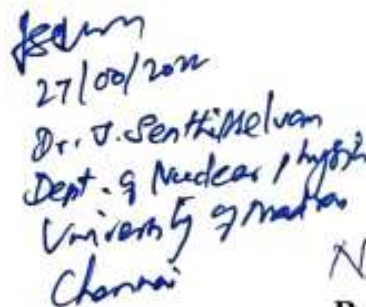 27/00/2022
Dr. J. Senthilselvan
Dept. of Nuclear Physics
University of Madras
Chennai
N